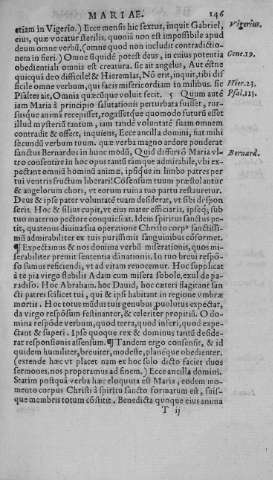 MARIAE. 146
etiam in Vigerio.) Ecce mensis hic sextus, inquit Gabriel,
eius, quæ vocatur sterilis, quoniā non est impossibile apud
deum omne verbū, (omne quod non includit contradictio-
nem in seri.) Omne siquidē potest deus, in cuius potentia
obedientiali omnis est creatura. sic ait angelus, Aut estne
quicquā deo difficile? & Hieremias, Nō erit, inquit, tibi dif
ficile omne verbum, qui facis misericordiam in millibus. sic
Psaltes ait, Omnia quæcunque voluit fecit. 5 Quum autē
iam Maria à principio salutationis perturbata fuisset, rur-
susque animi receptui fuisset, rogassetque quomodo futurū esset
illud mysteriū tantum, iam tandē voluntatē suam omnem
contradit & offert, inquiens, Ecce ancilla domini, fiat mihi
secundū verbum tuum. quæ verba magno ardore ponderat
sanctus Bernardus in hunc modū, Quid differs ô Maria vl-
tro consentire in hoc opus tantū tamque admirabile, vbi ex-
pectant omniū hominū animæ, ipseque in limbo patres per
tui ventris fructum liberari? Consensum tuum præstolantur
& angelorum chori, vt eorum ruina tuo partu restauretur.
Deus & ipse pater voluntatē tuam desiderat, vt sibi despon
seris. Hoc & filius cupit, vt eius mater efficiaris, ipseque, sub
tuo materno iure conquiescat. Idem spiritus sanctus pe-
tit, quatenus diuina sua operatione Christi corpus sanctissi-
mū admirabiliter ex tuis purissimis sanguinibus cōformet.
¶ Expectamus & nos domina verbū miserationis, quos mi-
serabiliter premit sententia dānationis. In tuo breui respō-
so sumus reficiendi, vt ad vitam reuocemur. Hoc supplicat
à te pia virgo flebilis Adam cum misera sobole, exul de pa-
radiso. Hoc Abraham. hoc Dauid, hoc cæteri flagitant san
cti patres scilicet tui, qui & ipsi habitant in regione vmbræ
mortis. Hoc totus mūdus tuis genubus puolutus expectat,
da virgo respōsum festinanter, & celeriter propitiū. O do
mina respōde verbum, quod terra, quod inferi, quod expe-
ctant & superi. Ipse quoque rex & dominus tantū deside-
rat responsionis assensum. ¶ Tandem ergo consensit, & id
quidem humiliter, breuiter, modeste, planéque obedienter.
(extende hæc vt placet nam ex hoc solo facto duos
sermones, nos properamus ad finem.) Ecce ancilla domini.
Statim postquā verba hæc eloquuta est Maria, eodem mo-
mento corpus Christi à spiritu sancto formatum est, suis-
que membris totum cōstitit. Benedicta quoque eius anima
T ij
Vigerius.
Gene.19.
Hier.23.
Psal.113.
Bernard.